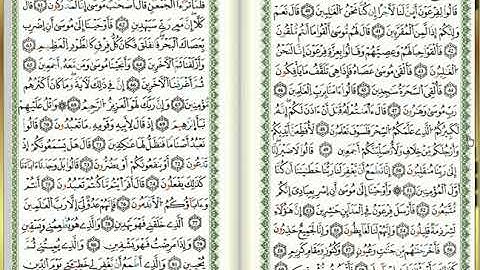 قَالُوا لِفِرْعَوْنَ أَئِنَّ لَنَا لَأَجْرًا إِن كُنَّا نَحْنُ الْغَالِبِينَ ۝٤١ قَالَ نَعَمْ
وَإِنَّكُمْ إِذًا لَّمِنَ الْمُقَرَّبِينَ ۝٤٢ قَالَ لَهُم مُّوسَىٰ أَلْقُوا مَا أَنتُم مُّلْقُونَ
۝٤٣ فَأَلْقَوْا حِبَالَهُمْ وَعِصِيَّهُمْ وَقَالُوا بِعِزَّةِ فِرْعَوْنَ إِنَّا لَنَحْنُ
الْغَالِبُونَ ۝٤٤ فَأَلْقَىٰ مُوسَىٰ عَصَاهُ فَإِذَا هِيَ تَلْقَفُ مَا يَأْفِكُونَ
۝٤٥ فَأُلْقِيَ السَّحَرَةُ سَاجِدِينَ ۝٤٦ قَالُوا آمَنَّا بِرَبِّ الْعَالَمِينَ ۝٤٧
رَبِّ مُوسَىٰ وَهَارُونَ ۝٤٨ قَالَ آمَنتُمْ لَهُ قَبْلَ أَنْ آذَنَ لَكُمْ إِنَّهُ
لَكَبِيرُكُمُ الَّذِي عَلَّمَكُمُ السِّحْرَ فَلَسَوْفَ تَعْلَمُونَ لَأُقَطِّعَنَّ أَيْدِيَكُمْ
وَأَرْجُلَكُم مِّنْ خِلَافٍ وَلَأُصَلِّبَنَّكُمْ أَجْمَعِينَ ۝٤٩ قَالُوا لَا ضَيْرَ إِنَّا
إِلَىٰ رَبِّنَا مُنقَلِبُونَ ۝٥٠ إِنَّا نَطْمَعُ أَن يَغْفِرَ لَنَا رَبُّنَا خَطَايَانَا أَن كُنَّا
أَوَّلَ الْمُؤْمِنِينَ ۝٥١ ۞ وَأَوْحَيْنَا إِلَىٰ مُوسَىٰ أَنْ أَسْرِ بِعِبَادِي إِنَّكُم
مُّتَّبَعُونَ ۝٥٢ فَأَرْسَلَ فِرْعَوْنُ فِي الْمَدَائِنِ حَاشِرِينَ ۝٥٣ إِنَّ هَٰؤُلَاءِ
لَشِرْذِمَةٌ قَلِيلُونَ ۝٥٤ وَإِنَّهُمْ لَنَا لَغَائِظُونَ ۝٥٥ وَإِنَّا لَجَمِيعٌ حَاذِرُونَ
۝٥٦ فَأَخْرَجْنَاهُم مِّن جَنَّاتٍ وَعُيُونٍ ۝٥٧ وَكُنُوزٍ وَمَقَامٍ كَرِيمٍ ۝٥٨
فَلَمَّا تَرَاءَا الْجَمْعَانِ قَالَ أَصْحَابُ مُوسَىٰ إِنَّا لَمُدْرَكُونَ ۝٦١ قَالَ
كَلَّا إِنَّ مَعِيَ رَبِّي سَيَهْدِينِ ۝٦٢ فَأَوْحَيْنَا إِلَىٰ مُوسَىٰ أَنِ اضْرِب
بِّعَصَاكَ الْبَحْرَ فَانفَلَقَ فَكَانَ كُلُّ فِرْقٍ كَالطَّوْدِ الْعَظِيمِ ۝٦٣
وَأَزْلَفْنَا ثَمَّ الْآخَرِينَ ۝٦٤ وَأَنجَيْنَا مُوسَىٰ وَمَن مَّعَهُ أَجْمَعِينَ ۝٦٥
ثُمَّ أَغْرَقْنَا الْآخَرِينَ ۝٦٦ إِنَّ فِي ذَٰلِكَ لَآيَةً وَمَا كَانَ أَكْثَرُهُم
مُّؤْمِنِينَ ۝٦٧ وَإِنَّ رَبَّكَ لَهُوَ الْعَزِيزُ الرَّحِيمُ ۝٦٨ وَاتْلُ عَلَيْهِمْ
نَبَأَ إِبْرَاهِيمَ ۝٦٩ إِذْ قَالَ لِأَبِيهِ وَقَوْمِهِ مَا تَعْبُدُونَ ۝٧٠ قَالُوا
نَعْبُدُ أَصْنَامًا فَنَظَلُّ لَهَا عَاكِفِينَ ۝٧١ قَالَ هَلْ يَسْمَعُونَكُمْ إِذْ
تَدْعُونَ ۝٧٢ أَوْ يَنفَعُونَكُمْ أَوْ يَضُرُّونَ ۝٧٣ قَالُوا بَلْ وَجَدْنَا آبَاءَنَا
كَذَٰلِكَ يَفْعَلُونَ ۝٧٤ قَالَ أَفَرَأَيْتُم مَّا كُنتُمْ تَعْبُدُونَ ۝٧٥ أَنتُمْ
وَآبَاؤُكُمُ الْأَقْدَمُونَ ۝٧٦ فَإِنَّهُمْ عَدُوٌّ لِّي إِلَّا رَبَّ الْعَالَمِينَ ۝٧٧
الَّذِي خَلَقَنِي فَهُوَ يَهْدِينِ ۝٧٨ وَالَّذِي هُوَ يُطْعِمُنِي وَيَسْقِينِ
۝٧٩ وَإِذَا مَرِضْتُ فَهُوَ يَشْفِينِ ۝٨٠ وَالَّذِي يُمِيتُنِي ثُمَّ
يُحْيِينِ ۝٨١ وَالَّذِي أَطْمَعُ أَن يَغْفِرَ لِي خَطِيئَتِي يَوْمَ الدِّينِ ۝٨٢